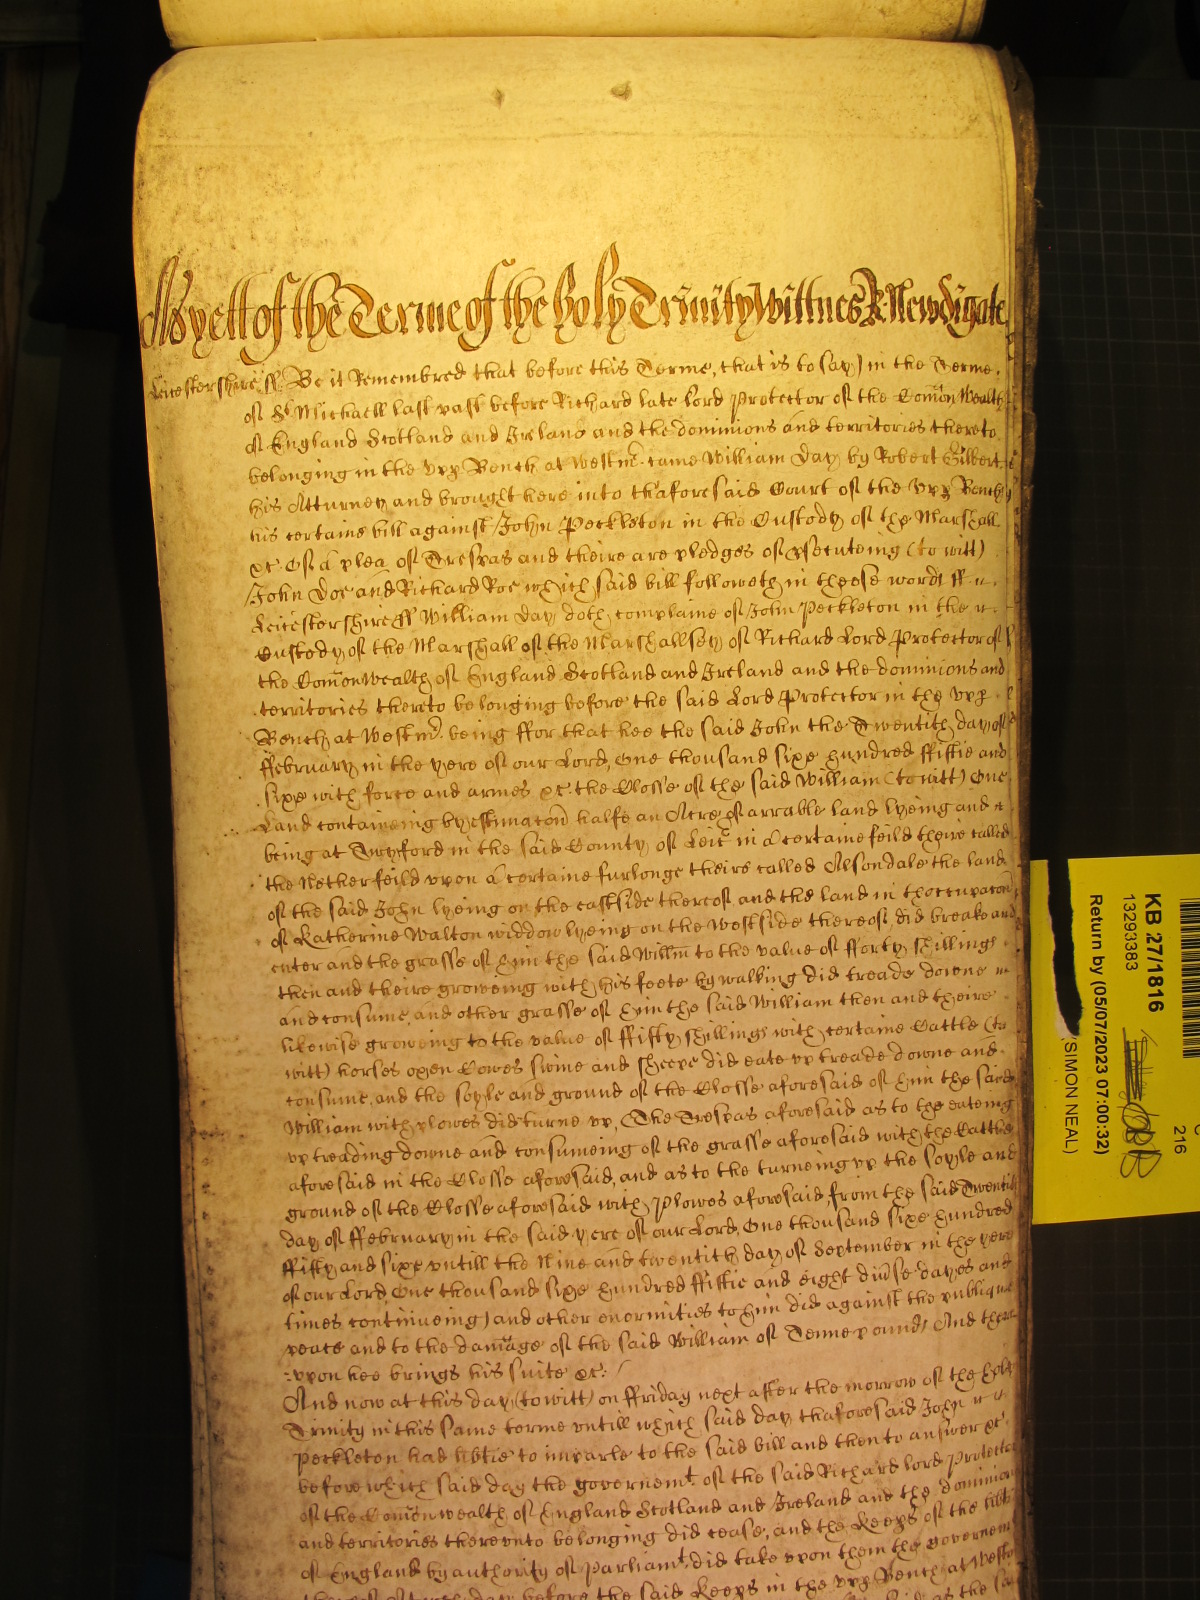 As yett of the Terme of the holy Trinity Wittnes R: Newdigate
Leicestershire ss. Be it Remembred that before this Terme, that is to say) in the Terme.
of St Michaell last past before Richard late lord Protector of the Comon Wealth
of England Scotland and Ireland and the dominions and territories thereto
belonging in the vpp Bench at Westmr. came William Day by Robert Gilbert
his Atturney and brought here into thaforesaid Court of the vpp Bench
his certaine bill against John Peckleton in the Custody of the Marshall
&c. Of a plea of Trespas and theire are pledges of psecuteing (to witt)
John Doe and Richard Roe which said bill followeth in theese words ss
Leicestershire ss William Day doth complaine of John Peckleton in the
Custody of the Marshall of the Marshallsey of Richard Lord Protector of
the Comon Wealth of England Scotland and Ireland and the dominions and
territories thereto belonging before the said Lord Protector in the vpp
Bench at Westmr. being ffor that hee the said John the Twentith day of
ffebruary in the yere of our Lord, One thousand sixe hundred ffiftie and
sixe with force and armes &c. the Closse of the said William (to witt) One
Land containeing by estimacon halfe an Acre of arrable land lyeing and
being at Twyford in the said County of Leic in a certaine feild theire called
the Netherfeild vpon a certaine furlonge theire called Alsondale the land
of the said John lyeing on the eastside thereof and the land in thoccupacon
of Katherine Walton widdow lyeing on the westside thereof, did breake and
enter and the grasse of him the said Willm to the value of fforty shillings
then and theire groweing with his feete by walking did treade downe
and consume, and other grasse of him the said William then and theire
likewise groweing to the value of ffifty shillings with certaine Cattle (to
witt) horses oxen Cowes swine and sheepe did eate vp treade downe and
consume, and the soyle and ground of the Closse aforesaid of him the said
William with plowes did turne vp, The Trespas aforesaid as to the eateing
vp treading downe and consumeing of the grasse aforesaid with the Cattle
aforesaid in the Closse aforesaid, and as to the turneing vp the soyle and
ground of the Closse aforesaid with Plowes aforesaid, from the said Twentith
day of ffebruary in the said yere of our Lord, One thousand sixe hundred
ffifty and sixe vntill the Nine and twentith day of September in the yere
of our Lord, One thousand sixe hundred ffiftie and eight divse dayes and
times continueing) and other enormities to him did against the publique
peace and to the damage of the said William of Tenne pounds And there
vpon hee brings his suite &c:
And now at this day (to witt) on ffriday next after the morrow of the holy
Trinity in this same terme vntill which said day thaforesaid John
Peckleton had libtie to imparle to the said bill and then to answer &c.
before which said day the governemt. of the said Richard lord Protector
of the Comonwealth of England Scotland and Ireland and the dominions
and territories therevnto belonging did cease; and the Keeps of the libty
of England by authority of Parliamt. did take vpon them the governemt
day before the said Keeps in the vpp Bench at Westm
KB 27/1816
13293383
Return by (05/07/2023 07:00:32)
(SIMON NEAL)
216